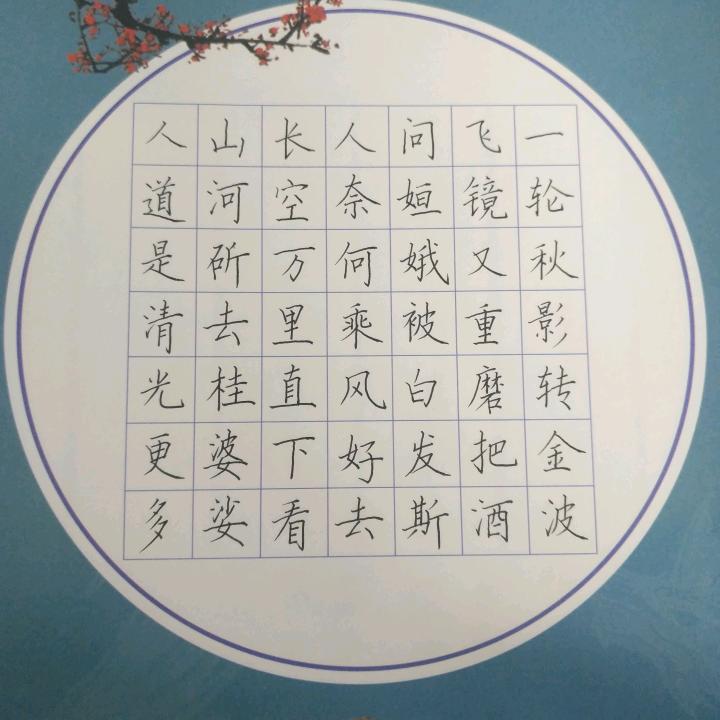 一轮秋影转金波
飞镜又重磨把酒
问姮娥被白发斯
人奈何乘风好去
长空万里直下看
山河斫去桂婆娑
人道是清光更多